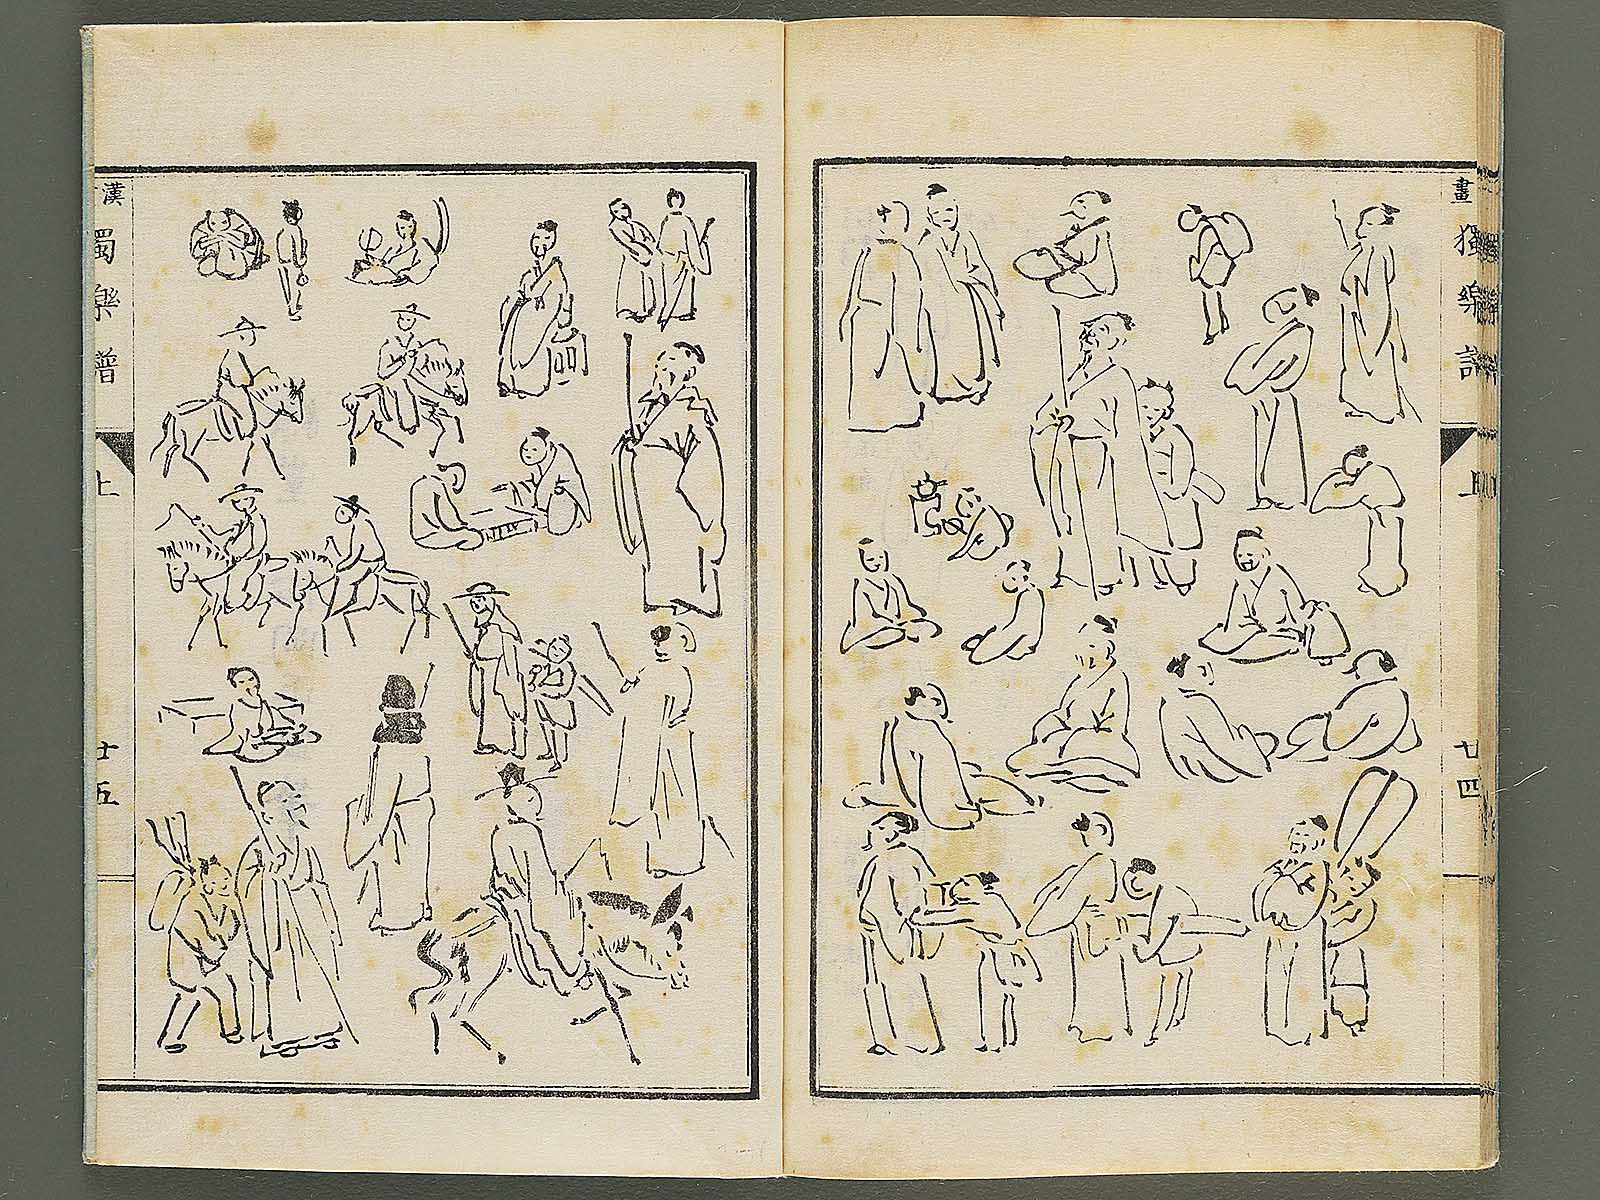 畫
獨樂譜
上
廿四
漢
獨樂譜
上
廿五